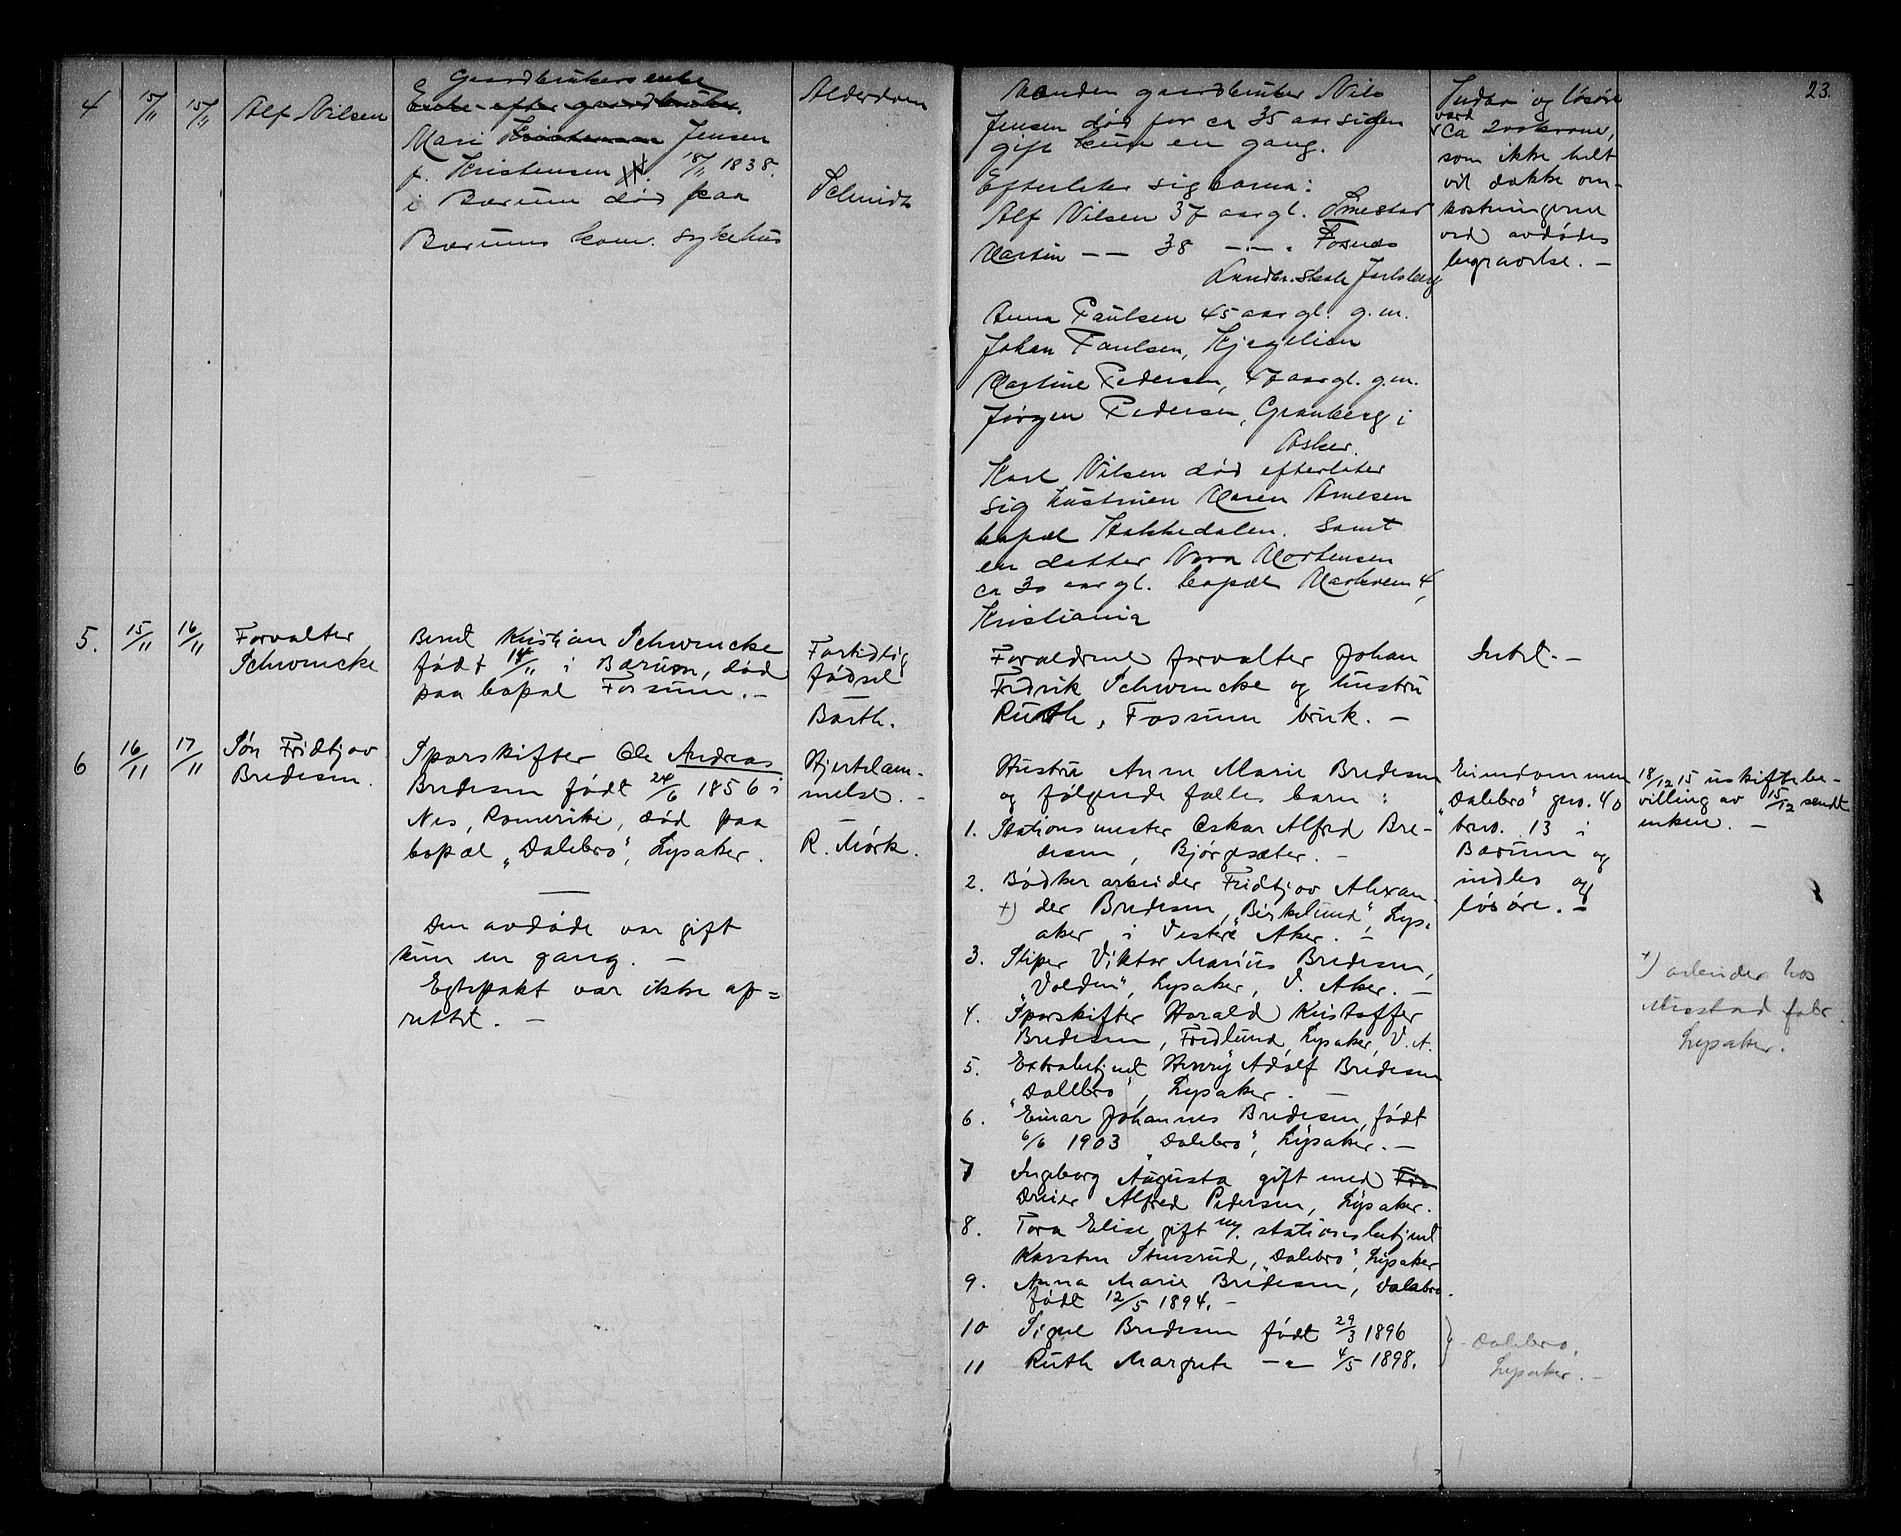 23.
4
15/11
15/11
Alf Nilsen
Gaardbrukers enke
Enke efter gaardbruker
Mari Kristensen Jensen
f. Kristensen 18/11 1838.
i Bærum død paa
Bærums kom. sykehus
Alderdom
Schmidt
Manden gaardbruker Nils
Jensen død for ca 35 aar siden
gift kun en gang.
Efterlater sig barna:
Alf Nilsen 37 aar gl.
Martin — — 38 — " — Fosnes
Landbr. skole Jarlsberg
Anna Paulsen 45 aar gl. g.m.
Johan Paulsen,
Martine Pedersen, 47 aar gl. g.m.
Jørgen Pedersen, Granberg i
Asker.
Karl Nilsen død efterlater
sig hustruen Maren Arnesen
bopæl Hakkedalen. Samt
en datter Nora Mortensen
ca 30 aar gl. bopæl Markvein 4,
Kristiania
Indbo og løsøre
værd
ca 200 kroner,
som ikke helt
vil dække om-
kostningerne
ved avdødes
begravelse. —
5.
15/11
16/11
Forvalter
Schwencke
Bernt Kristian Schwencke
født 14/11 i Bærum, død
paa bopæl Fossum. —
Fortidlig
fødsel
—
Barth.
Forældrene, forvalter Johan
Fredrik Schwencke og hustru
Ruth, Fossum bruk. —
Intet. —
6
16/11
17/11
Søn Fridtjov
Bredesen.
Sporskifter Ole Andreas
Bredesen født 24/6 1856 i
Nes, Romerike, død paa
bopæl „Dalebro", Lysaker.
—
Den avdøde var gift
kun en gang. —
Egtepakt var ikke op=
rettet. —
Hjertelam-
melse. —
—
R. Mørk.
Hustru Anne Marie Bredesen
og følgende fælles barn:
1. Stationsmester Oskar Alfred Bre-
desen, Bjørgesæter. —
2. Bødker arbeider Fridtjov Alexan-
+) der Bredesen, „Birkelund", Lys-
aker i Vestre Aker. —
3. Sliper Viktor Marius Bredesen,
„Volden", Lysaker, V. Aker. —
4. Sporskifter Harald Kristoffer
Bredesen, Fredlund, Lysaker, V. A.
5. Extrabetjent Henry Adolf Bredesen
„Dalebro", Lysaker. —
6. Einar Johannes Bredesen, født
6/6 1903 „Dalebro", Lysaker. —
7 Ingeborg Augusta gift med
Dreier Alfred Pedersen, Lysaker.
8. Tora Elise gift m/. stationsbetjent
Karsten Stensrud, „Dalebro", Lysaker
9. Anna Marie Bredesen, Dalebro.
født 12/5 1894. —
10 Signe Bredesen født 29/3 1896
11 Ruth Margrete — " — 4/5 1898.
Eiendommen
„Dalebro" gno. 40
brno. 13 i
Bærum og
indbo og
løsøre. —
Dalebro,
Lysaker. —
18/12 15 uskiftebe-
villing av 15/12 sendt
enken. —
+) arbeider hos
Mustad fabr.
Lysaker.